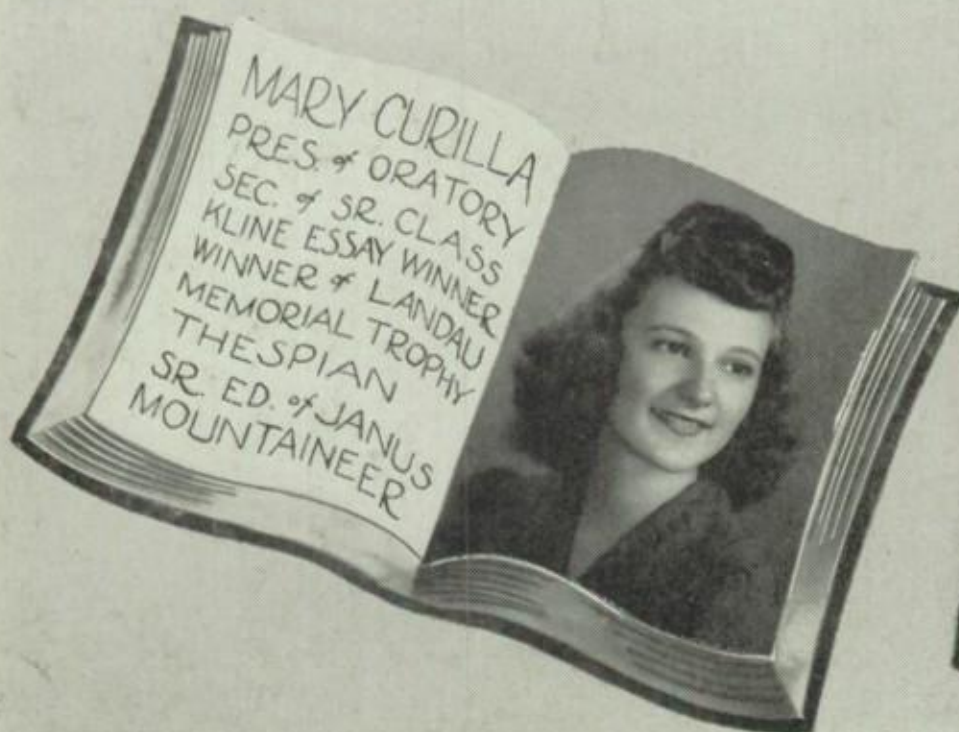 MARY CURILLA
PRES. of ORATORY
SEC. of SR. CLASS
KLINE ESSAY WINNER
WINNER of LANDAU
MEMORIAL TROPHY
THESPIAN
SR. ED. of JANUS
MOUNTAINEER